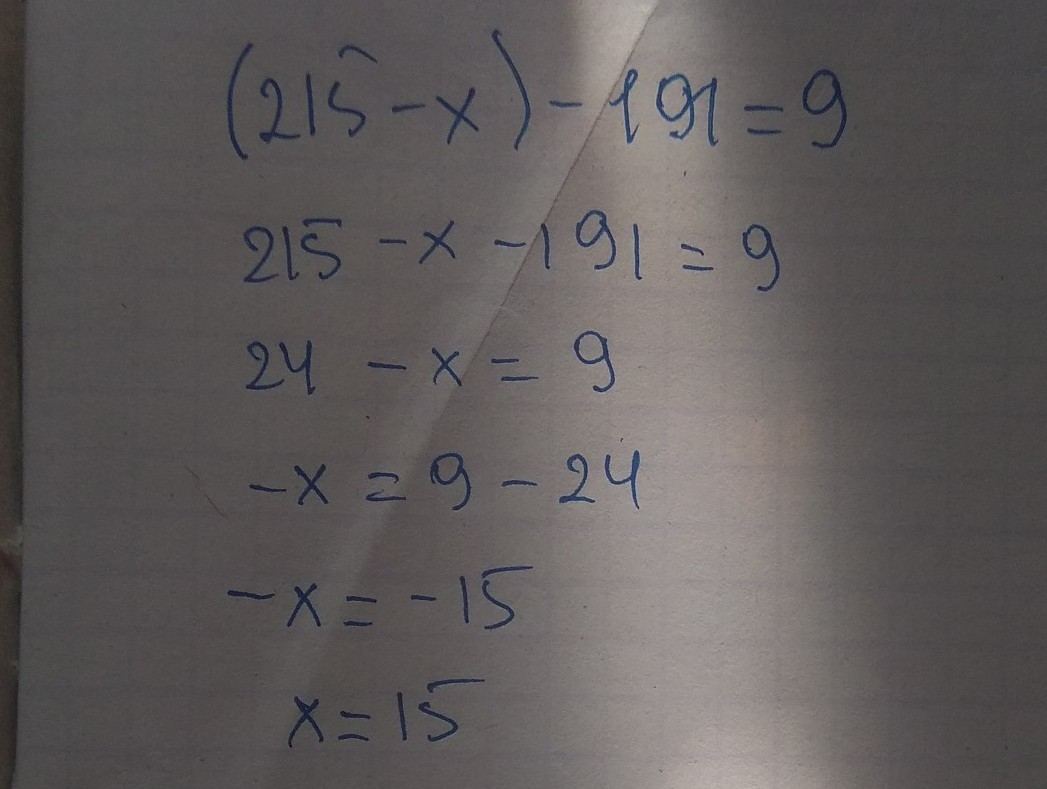 (215 - x) - 191 = 9
215 - x - 191 = 9
24 - x = 9
-x = 9 - 24
-x = -15
x = 15